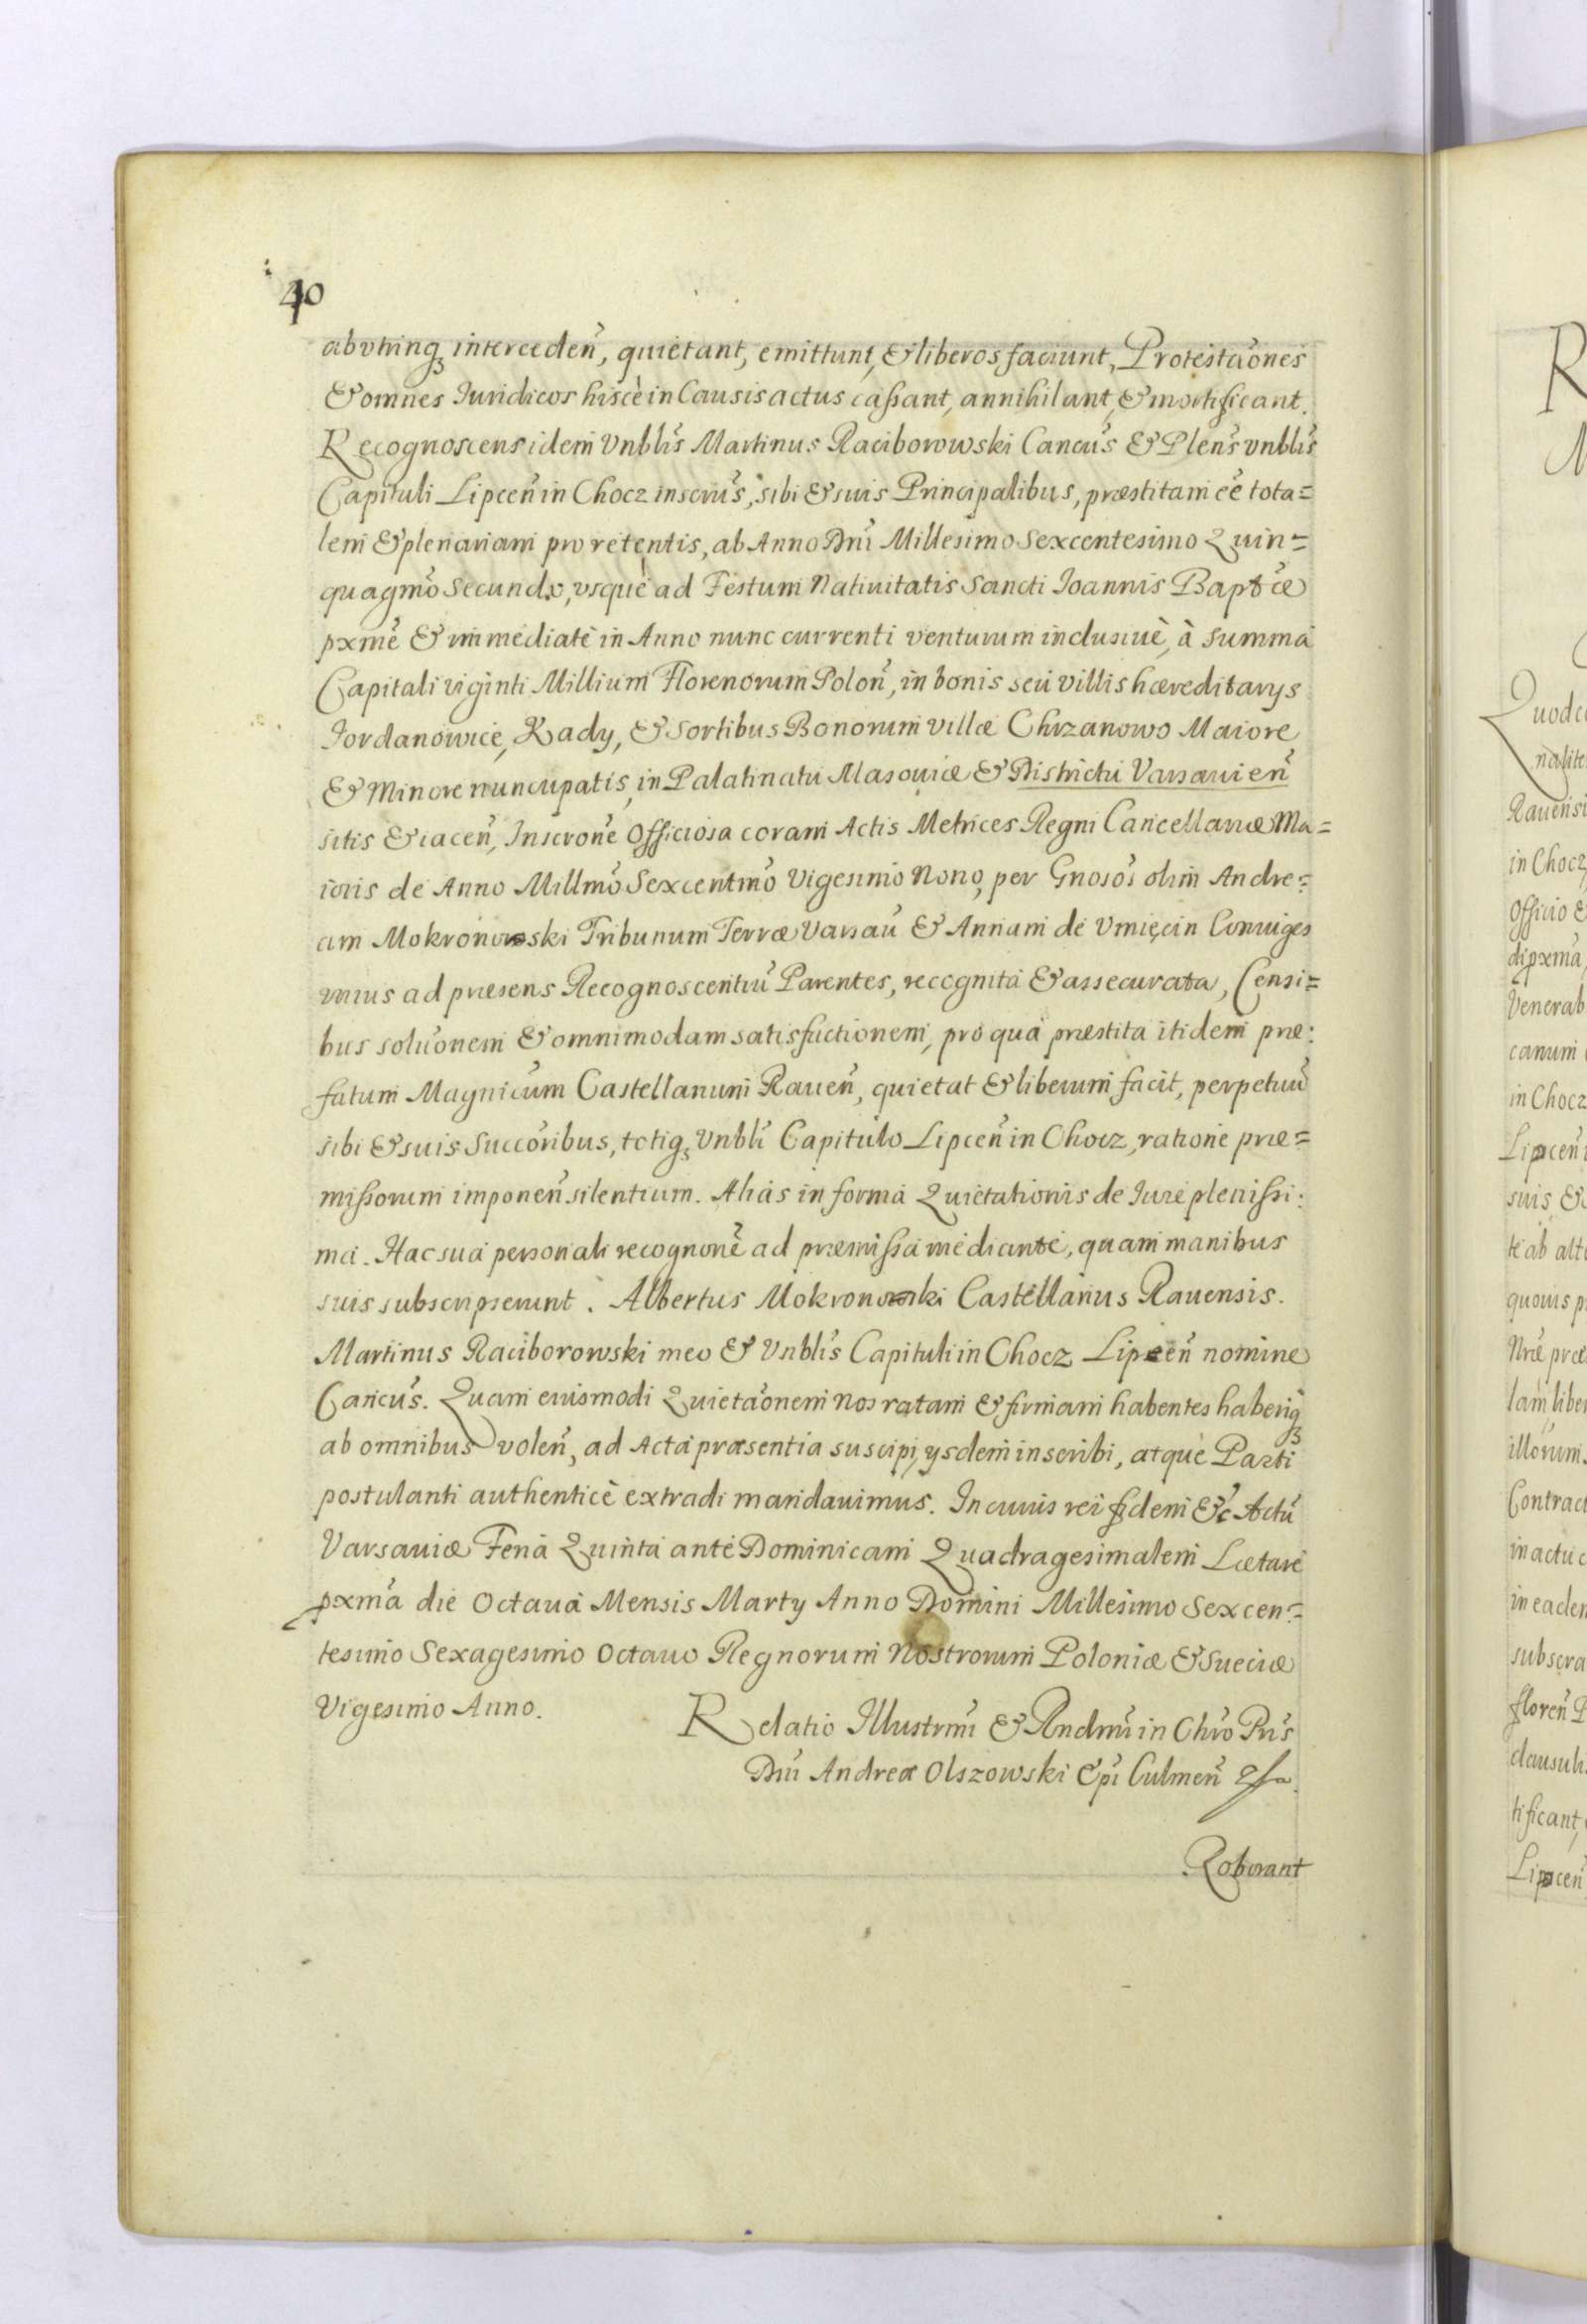 40
ab vtrinq₃ interceden̄, quietant, emittunt, & liberos faciunt, Protestaōnes
& omnes Iuridicos hiscè in Causis actus cassant, annihilant, & mortificant.
Recognoscens idem Vnblis̄ Martinus Raciborowski Cancus̄ & Plens̄ vnblis̄
Capituli Lipcen̄ in Chocz inscrius̄, sibi & suis Principalibus, præstitam eē tota=
lem & plenariam pro retentis, ab Anno Dnī Millesimo Sexcentesimo Quin=
quagmō Secundo, vsquè ad Festum Natiuitatis Sancti Ioannis Baptǣ
pxmē & immediatè in Anno nunc currenti venturum inclusiuè, à summa
Capitali viginti Millium Florenorum Polon̄, in bonis seu villis hæreditarys
Iordanowice, Kady, & sortibus Bonorum villæ Chrzanowo Maiore
& Minore nuncupatis, in Palatinatu Masouiæ & Districtu Varsauien̄
sitis & iacen̄, Inscronē Officiosa coram Actis Metrices Regni Cancellariæ Ma=
ioris de Anno Millmō Sexcentmō Vigesimo Nono, per Gnosōs olim Andre=
am Mokronowski Tribunum Terræ Varsau̅ & Annam de Vmięcin Coniuges
vnius ad præsens Recognoscentiū Parentes, recognita & assecurata, Censi=
bus soluōnem & omnimodam satisfactionem, pro qua præstita itidem præ:
fatum Magnicūm Castellanum Rauen̄, quietat & liberum facit, perpetuū
sibi & suis Succōribus, totiq₃ Vnblī Capitulo Lipcen̄ in Chocz, ratione præ=
missorum imponen̄ silentium. Alias in forma Quietationis de Iure plenissi:
ma. Hac sua personali recognonē ad præmissa mediante, quam manibus
suis subscripserunt. Albertus Mokronowski Castellanus Rauensis.
Martinus Raciborowski meo & Vnblis̄ Capituli in Chocz Lipcen̄ nomine
Cancus̄. Quam eiusmodi Quietaōnem nos ratam & firmam habentes haberiq₃
ab omnibus volen̄, ad Acta præsentia suscipi, ysdem inscribi, atquè Parti
postulanti authenticè extradi mandauimus. In cuius rei fidem &c̄ Actū
Varsauiæ Feria Quinta ante Dominicam Quadragesimalem Lætare
pxmā die Octaua Mensis Marty Anno Domini Millesimo Sexcen=
tesimo Sexagesimo Octauo Regnorum Nostrorum Poloniæ & Sueciæ
Vigesimo Anno.
Relatio Illustrmī & Rndmī in Chrō Pris̄
Dnī Andreæ Olszowski Epī Culmen̄
Roborant